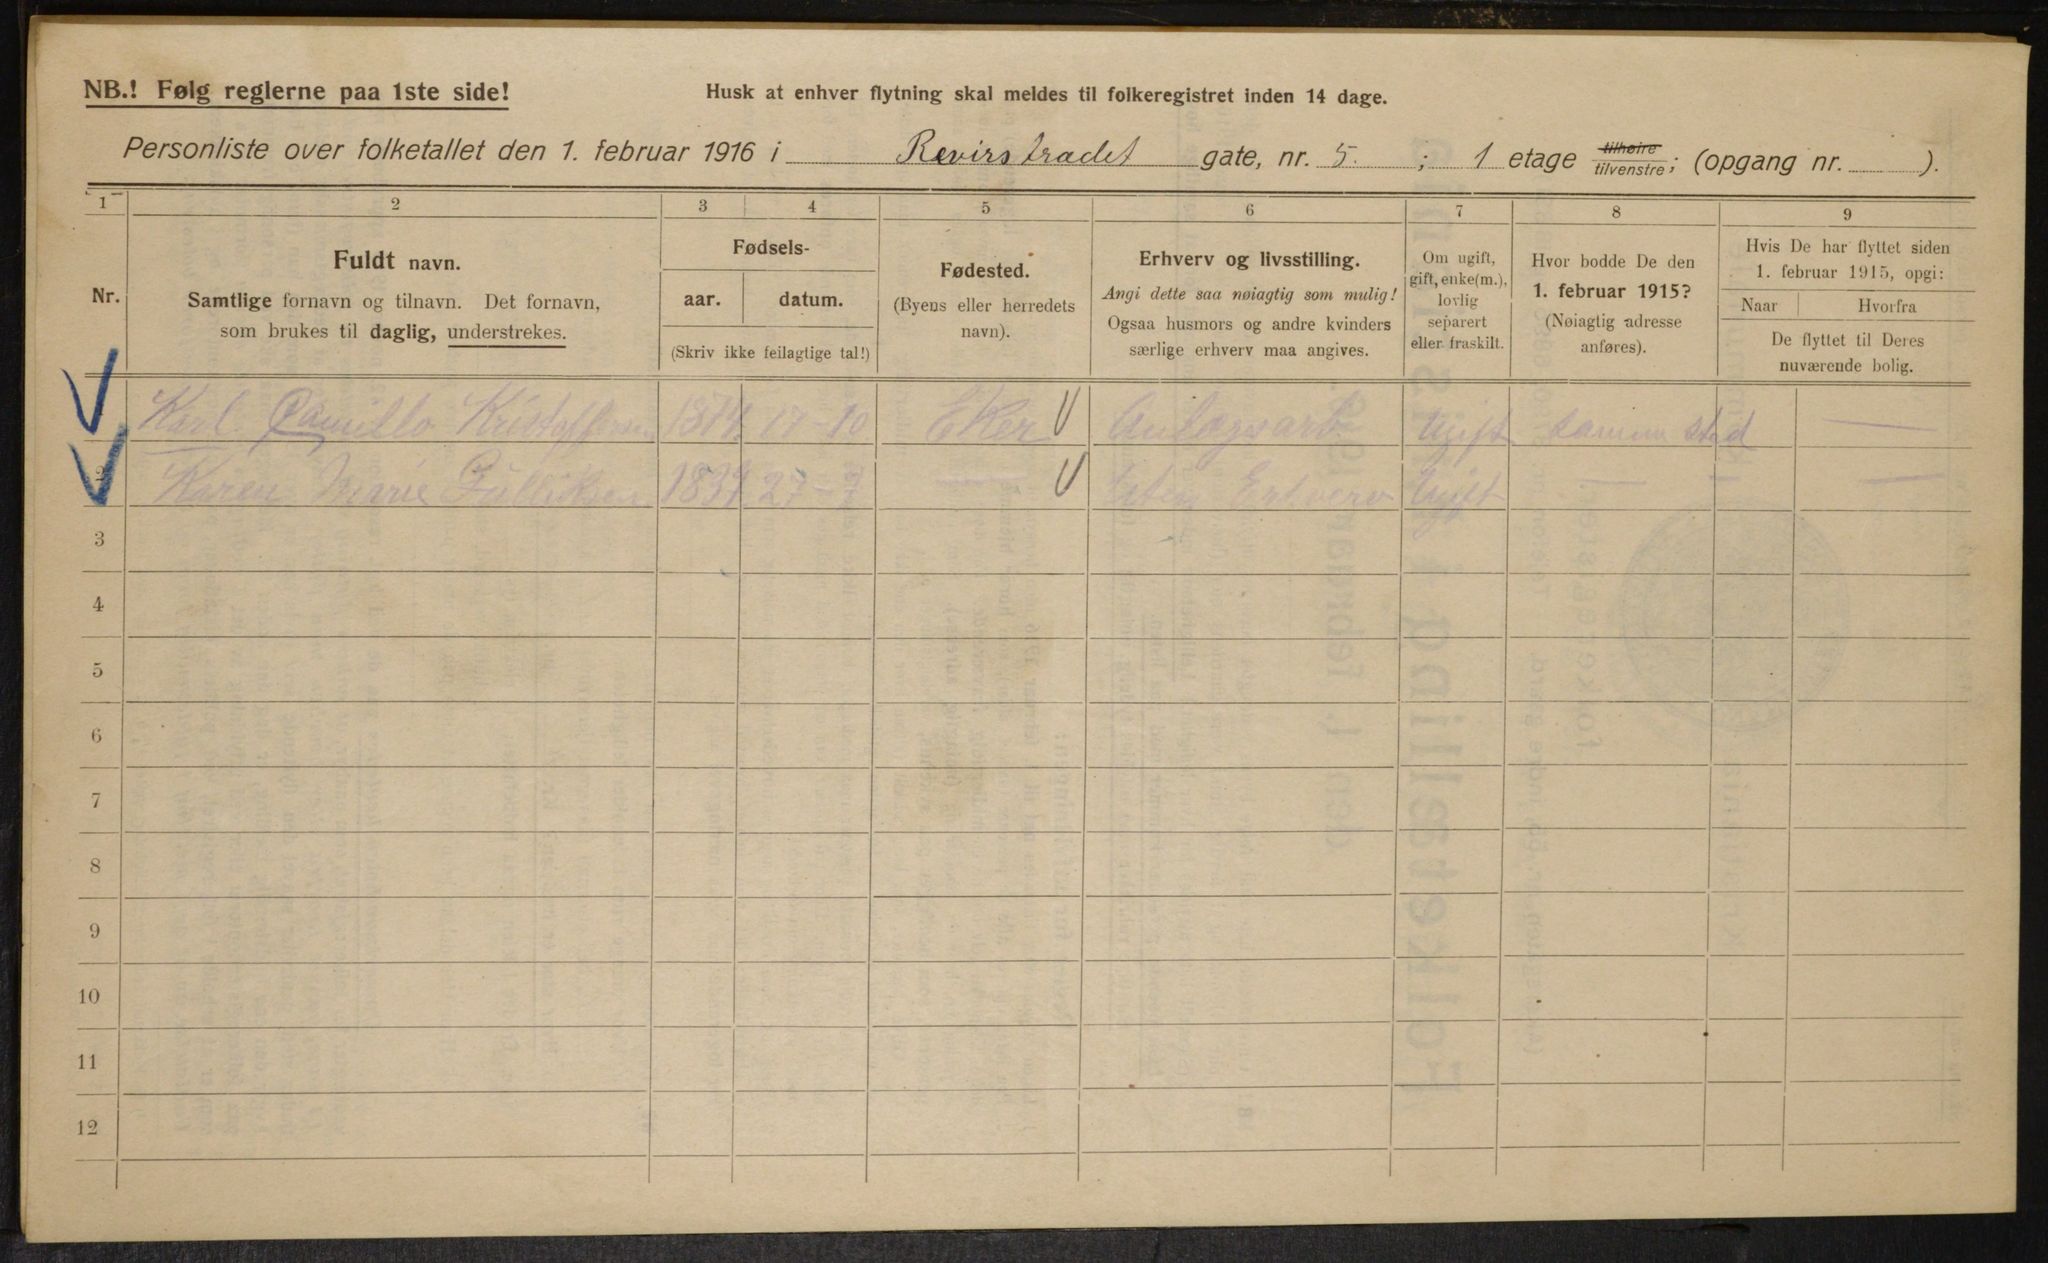 NB.! Følg reglerne paa 1ste side!
Husk at enhver flytning skal meldes til folkeregistret inden 14 dage.
Personliste over folketallet den 1. februar 1916 i Revirstrædet gate, nr. 5. ; 1 etage tilhøire tilvenstre; (opgang nr. ).
1 2 3 4 5 6 7 8 9
Nr.
Fuldt navn.
Samtlige fornavn og tilnavn. Det fornavn,
som brukes til daglig, understrekes.
Fødsels-
aar. datum.
(Skriv ikke feilagtige tal!)
Fødested.
(Byens eller herredets
navn).
Erhverv og livsstilling.
Angi dette saa nøiagtig som mulig!
Ogsaa husmors og andre kvinders
særlige erhverv maa angives.
Om ugift,
gift, enke(m.),
lovlig
separert
eller fraskilt.
Hvor bodde De den
1. februar 1915?
(Nøiagtig adresse
anføres).
Hvis De har flyttet siden
1. februar 1915, opgi:
Naar Hvorfra
De flyttet til Deres
nuværende bolig.
Karl Camillo Kristoffersen 1874 17-10 Eker Anlægsarb Ugift samme sted —
2 Karen Marie Gulliksen 27- — Uten Erhverv Ugift — —
3
4
5
6
7
8
9
10
11
12